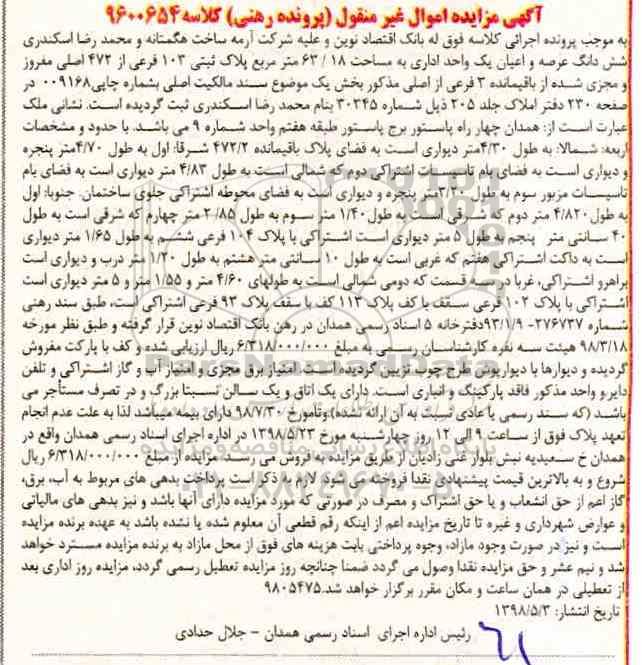 آگهی مزایده اموال غیر منقول (پرونده رهنی) کلاسه ۹۶۰۰۶۵۴
به موجب پرونده اجرائی کلاسه فوق له بانک اقتصاد نوین و علیه شرکت آرمه ساخت هگمتانه و محمد رضا اسکندری
شش دانگ عرصه و اعیان یک واحد اداری به مساحت ۱۸ / ۶۳ متر مربع پلاک ثبتی ۱۰۳ فرعی از ۴۷۲ اصلی مفروز
و مجزی شده از باقیمانده ۳ فرعی از اصلی مذکور بخش یک موضوع سند مالکیت اصلی بشماره چاپی۰۰۹۱۶۸ در
صفحه ۲۳۰ دفتر املاک جلد ۲۰۵ ذیل شماره ۳۰۳۴۵ بنام محمد رضا اسکندری ثبت گردیده است. نشانی ملک
عبارت است از: همدان چهار راه پاستور برج پاستور طبقه هفتم واحد شماره ۹ می باشد. با حدود و مشخصات
اربعه: شمالا: به طول ۴/۳۰متر دیواری است به فضای پلاک باقیمانده ۴۷۲/۲ شرقا: اول به طول ۴/۷۰متر پنجره
و دیواری است به فضای بام تاسیسات اشتراکی دوم که شمالی است به طول ۴/۸۳ متر دیواری است به فضای بام
تاسیسات مزبور سوم به طول ۳/۲۰متر پنجره و دیواری است به فضای محوطه اشتراکی جلوی ساختمان. جنوبا: اول
به طول۴/۸۲۰ متر دوم که شرقی است به طول ۱/۴۰ متر سوم به طول ۲/۸۵ متر چهارم که شرقی است به طول
۴۰ سانتی متر پنجم به طول ۵ متر دیواری است اشتراکی با پلاک ۱۰۴ فرعی ششم به طول ۱/۶۵ متر دیواری
است به داکت اشتراکی هفتم که غربی است به طول ۱۰ سانتی متر هشتم به طول ۱/۲۰ متر درب و دیواری است
براهرو اشتراکی، غربا در سه قسمت که دومی شمالی است به طولهای ۴/۶۰ متر و ۱/۵۵ متر و ۵ متر دیواری است
اشتراکی با پلاک ۱۰۲ فرعی سقف با کف پلاک ۱۱۳ کف با سقف پلاک ۹۳ فرعی اشتراکی است، طبق سند رهنی
شماره ۲۷۶۷۳۷- ۹۳/۱/۹دفترخانه ۵ اسناد رسمی همدان در رهن بانک اقتصاد نوین قرار گرفته و طبق نظر مورخه
۹۸/۳/۱۸ هیئت سه نفره کارشناسان رسمی به مبلغ ۶/۳۱۸/۰۰۰/۰۰۰ ریال ارزیابی شده و کف با پارکت مفروش
گردیده و دیوارها با دیوارپوش طرح چوب تزیین گردیده است. امتیاز برق مجزی و امتیاز آب و گاز اشتراکی و تلفن
دایر و واحد مذکور فاقد پارکینگ و انباری است. دارای یک اتاق و یک سالن نسبتا بزرگ و در تصرف مستأجر می
باشد (که سند رسمی یا عادی نسبت به آن ارائه نشده).وتامورخ ۹۸/۷/۳۰ دارای بیمه میباشد لذا به علت عدم انجام
تعهد پلاک فوق از ساعت ۹ الی ۱۲ روز چهارشنبه مورخ ۱۳۹۸/۵/۲۳ در اداره اجرای اسناد رسمی همدان واقع در
همدان خ سعیدیه نبش بلوار غنی زادیان از طریق مزایده به فروش می رسد. مزایده از مبلغ ۶/۳۱۸/۰۰۰/۰۰۰ ریال
شروع و به بالاترین قیمت پیشنهادی نقدا فروخته می شود لازم به ذکر است پرداخت بدهی های مربوط به آب، برق،
گاز اعم از حق انشعاب و یا حق اشتراک و مصرف در صورتی که مورد مزایده دارای آنها باشد و نیز بدهی های مالیاتی
و عوارض شهرداری و غیره تا تاریخ مزایده اعم از اینکه رقم قطعی آن معلوم شده یا نشده باشد به عهده برنده مزایده
است و نیز در صورت وجود مازاد، وجوه پرداختی بابت هزینه های فوق از محل مازاد به برنده مزایده مسترد خواهد
شد و نیم عشر و حق مزایده نقدا وصول می گردد ضمنا چنانچه روز مزایده تعطیل رسمی گردد، مزایده روز اداری بعد
از تعطیلی در همان ساعت و مکان مقرر برگزار خواهد شد.۹۸۰۵۴۷۵
تاریخ انتشار: ۱۳۹۸/۵/۳
رئیس اداره اجرای اسناد رسمی همدان - جلال حدادی
ParsNamadData